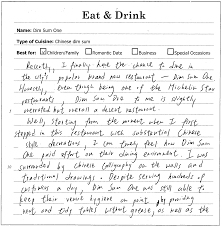 Eat & Drink
Name: Dim Sum One
Type of Cuisine: Chinese dim sum
Best for: Children/Family Romantic Date Business Special Occasions
Recently, I finally have the chance to dine in
the city's popular brand new restaurant – Dim Sum One
Honestly, even though being one of the Michelin Star
restaurants, Dim Sum One to me is slightly
overrated but overall a decent restaurant
Well, starting from the moment when I first
stepped in this restaurant with substantial Chinese
style decorations, I can surely feel how Dim Sum
One paid effort on their dining environment. I was
surrounded by Chinese calligraphy on the walls and
traditional drawings. Despite serving hundreds of
customers a day, Dim Sum One was still able to
keep their venue hygiene on point by providing
neat and tidy tables without grease, as well as the